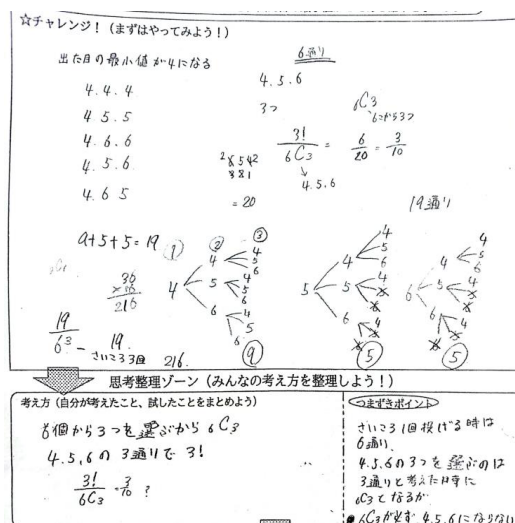 ☆チャレンジ！（まずはやってみよう！）
出た目の最小値が4になる
6通り
4.4.4
4 5.5
4.6.6
4.5.6
4.6 5
4.5.6
3つ
6C3
6こから3つ
3!/6C3 = 6/20 = 3/10
4.5.6
= 20
19通り
9+5+5=19
① ② ③
36
×6
216
19/6³ - 19/216
さいころ3回
4 4 4 5 6
5 4 5 6
6 4 5 6
⑨
5 4 4 5 6
5 4
6 4
⑤
6 4 4 5 6
5 4
6 4
⑤
思考整理ゾーン（みんなの考え方を整理しよう！）
考え方（自分が考えたこと、試したことをまとめよう）
6個から3つを選ぶから 6C3
4.5.6の 3通りで 3!
3!/6C3 3/10 ?
つまずきポイント
さいころ1回投げる時は
6通り
4.5.6の3つを選ぶのは
3通りと考えた時に
6C3となるか
●6C3が必ず 4.5.6にならない